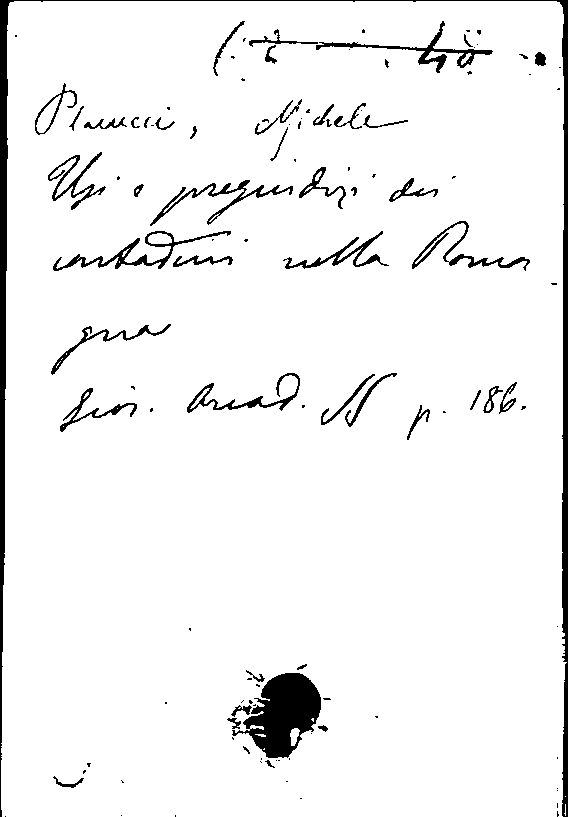 Placucci, Michele
Usi e pregiudizi dei
contadini nella Roma
gna
Gior. Arcad. p. 186.